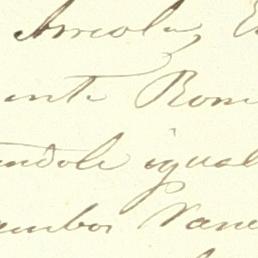 Arreola, E
ente Rom
andole igual
ambos Vane